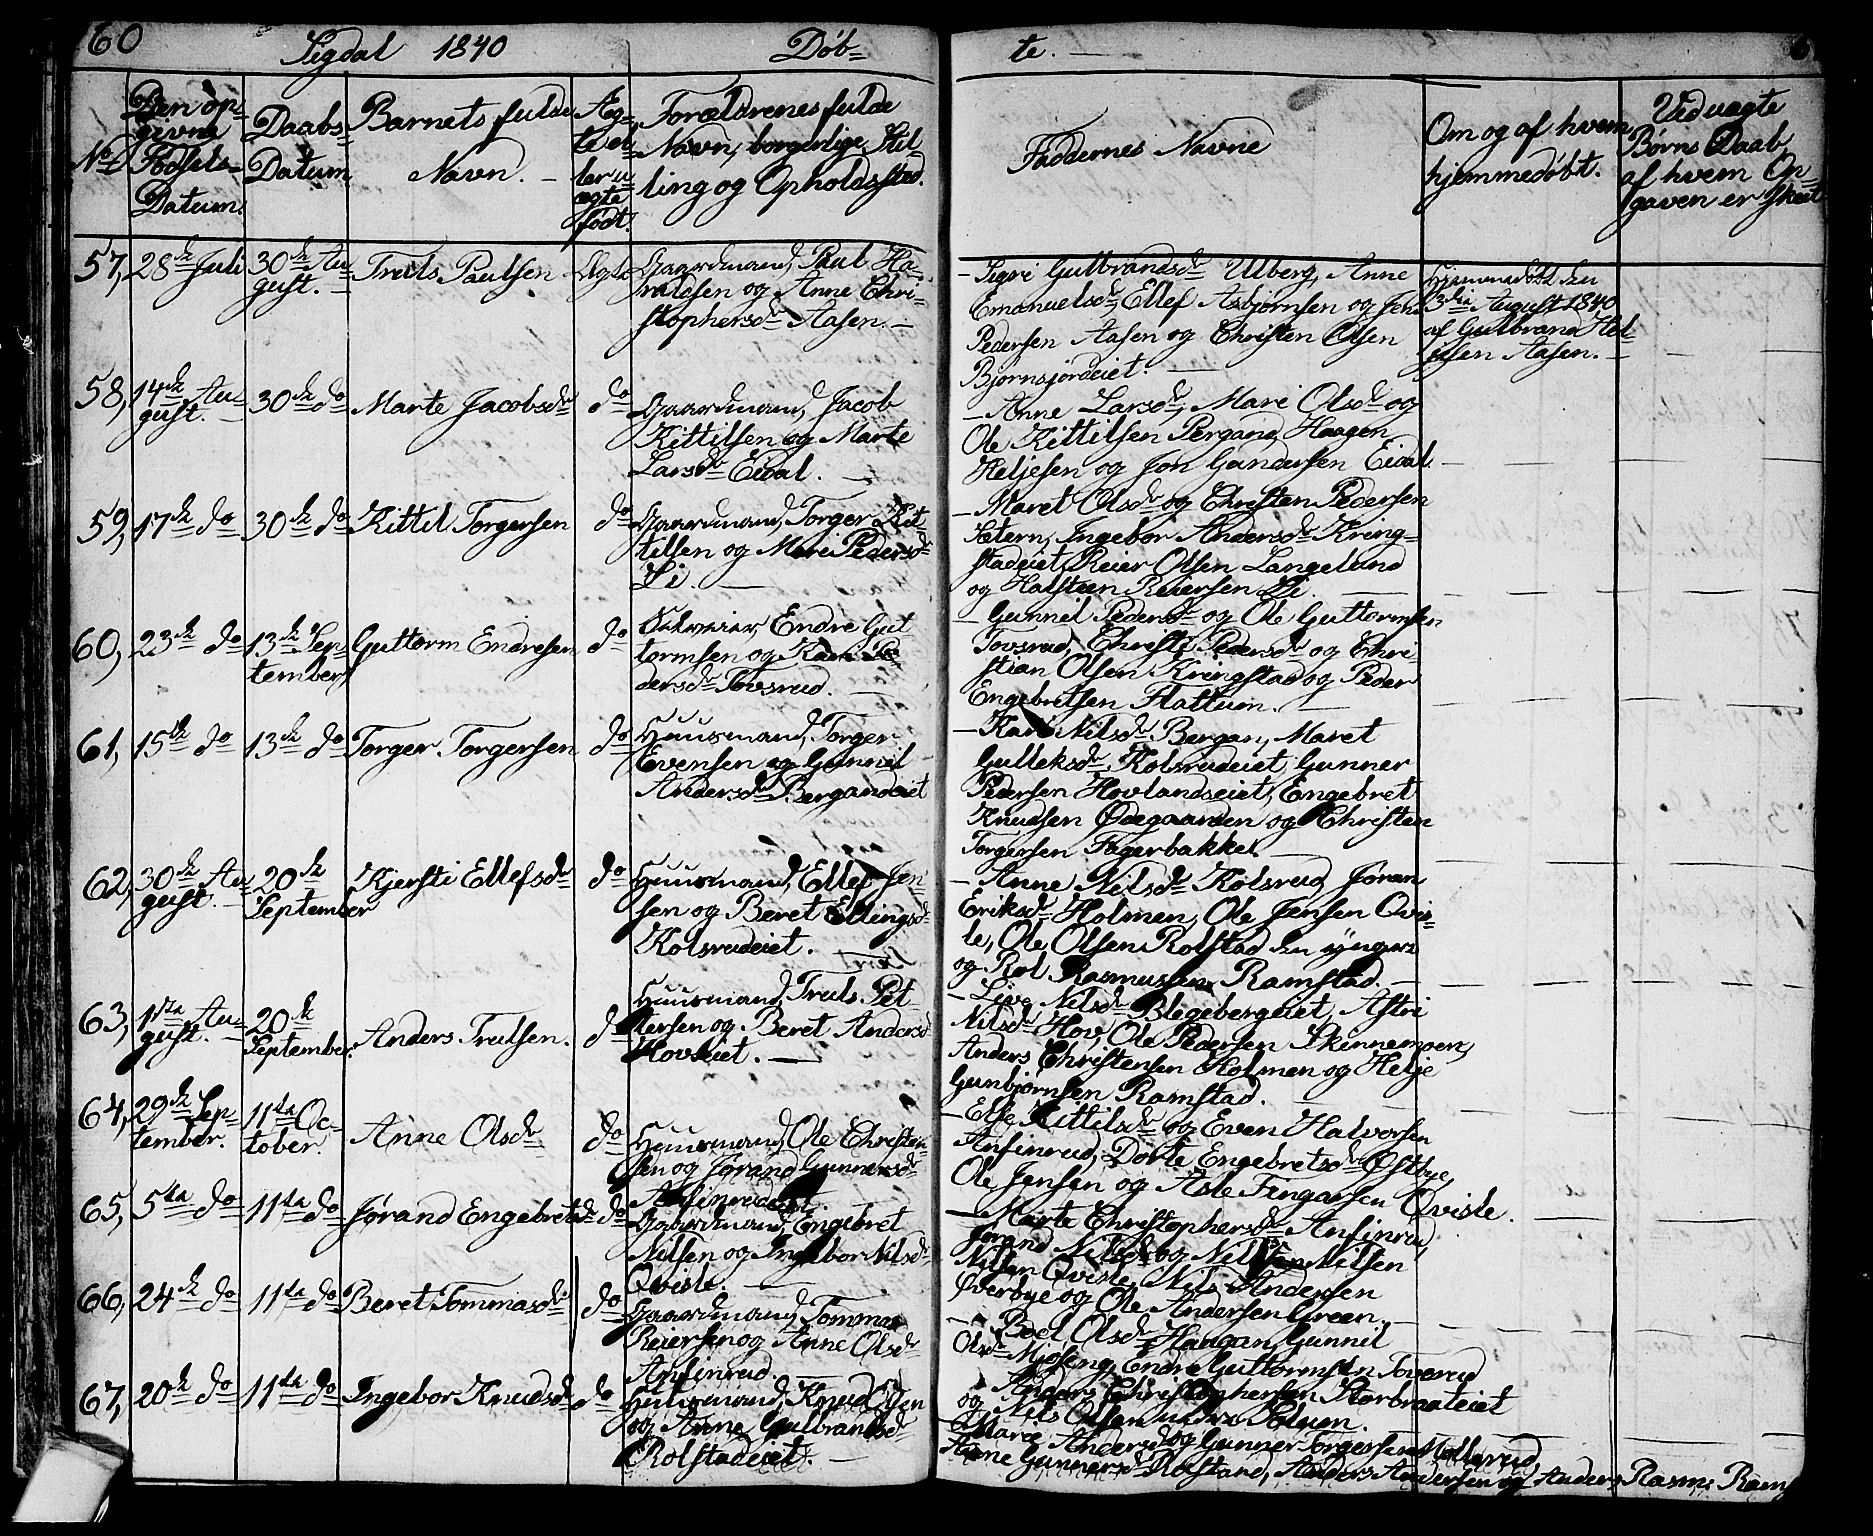 60
Sigdal 1840 Døb-
te. 6
No
Den op-
givne
Fødsels-
Datum.
Daabs
Datum
Barnets fulde
Navn.
Æg-
te el-
ler u-
ægte
født.
Forældrenes fulde
Navn, borgerlige Stil-
ling og Opholdssted.
Faddernes Navne
Om og af hvem
hjemmedøbt.
Ved uægte
Børns Daab,
af hvem Op-
gaven er skeet
57, 28de Juli 30de Au-
gust. Truls Paulsen Ægte
Gaardmand, Paul Ha-
raldsen og Anne Chri-
stophersdr Aasen.
- Sigri Gulbrandsdr Ulberg, Anne
Emanuelsdr, Ellef Asbjørnsen og Jens
Pedersen Aasen og Christen Olsen
Bjørnsjordeiet.
Hjemmedøbt den
3die August 1840
af Gulbrand Hel-
gesen Aasen.
58, 14de Au-
gust. 30de do Marte Jacobsdr do
Gaardmand, Jacob
Kittilsen og Marte
Larsdr Eidal.
- Anne Larsdr, Mari Olsdr og
Ole Kittilsen Bergand, Haagen
Heljesen og Jon Gundersen Eidal
59, 17de do 30de do Kittil Torgersen do
Gaardmand, Torger Kit-
tilsen og Mari Pedersdr
Li.
- Maret Olsdr og Christen Pedersen
Sætern, Ingebor Andersdr Kring-
stadeiet, Reier Olsen Langelund
og Halsteen Reiersen Li.
60, 23de do 13de Sep-
tember Guttorm Endresen do
Endre Gut-
tormsen og Kari Pe-
dersdr Tovsrud.
- Gunnil Pedersdr og Ole Guttormsen
Tovsrud, Christi Pedersdr og Chri-
stian Olsen Kringstad og Peder
Engebretsen Flattum.
61, 15de do 13de do Torger Torgersen do
Huusmand, Torger
Evensen og Gunnil
Andersdr Bergandeiet
- Kari Nilsdr Bergan, Maret
Gulleksdr Kolsrudeiet, Gunner
Pedersen Hovlandseiet, Engebret
Knudsen Ødegaarden og Christen
Torgersen Fagerbakken
62, 30de Au-
gust. 20de
September Kjersti Ellefsdr do
Huusmand, Ellef Jen-
sen og Beret Ellingsdr
Kolsrudeiet.
- Anne Nilsdr Kolsrud, Jøran
Eriksdr Holmen, Ole Jensen Qvis-
le, Ole Olsen Rolstad den yngere
og Rol Rasmussen Ramstad.
63, 17de Au-
gust. 20de
September. Anders Trulsen. do
Huusmand, Truls Pet-
tersen og Beret Andersdr
Hovseiet.
- Live Nilsdr Blegebergeiet, Astri
Nilsdr Hov, Ole Pedersen Skinnemoen,
Anders Christensen Holmen og Helje
Gunbjørnsen Ramstad.
64, 29de Sep-
tember. 11te Oc-
tober. Anne Olsdr do
Huusmand, Ole Christen-
sen og Jørand Gunnersdr
Anfinrudeiet.
- Else Kittilsdr og Even Halvorsen
Anfinrud, Dorte Engebretsdr Østbye,
Ole Jensen og Asle Fingarsen Qvisle.
65, 5te do 11te do Jørand Engebretsdr do
Gaardmand, Engebret
Nilsen og Ingebor Nilsdr
Qvisle.
- Marte Christophersdr Anfinrud,
Jørand Nilsdr og Nils Nilsen
Qvisle, Nils Andersen
Øverbye og Ole Andersen Green.
66, 24de do 11te do Beret Tommasdr do
Gaardmand, Tommas
Reiersen og Anne Olsdr
Anfinrud.
- Boel Olsdr Haugan, Gunnil
Olsdr Mjøseng, Endre Guttormsen Tovsrud
Anders Christophersen Storbraateiet
og Nils Olsen nedre Solum.
67, 20de do 11te do Ingebor Knudsdr do
Huusmand, Knud Olsen
og Anne Gulbrandsdr
Rolstadeiet.
- Mari Andersdr og Gunner Torgersen Mollerud,
Anne Gunnersdr Rolstand, Anders Andersen og Anders Rasms Ramst